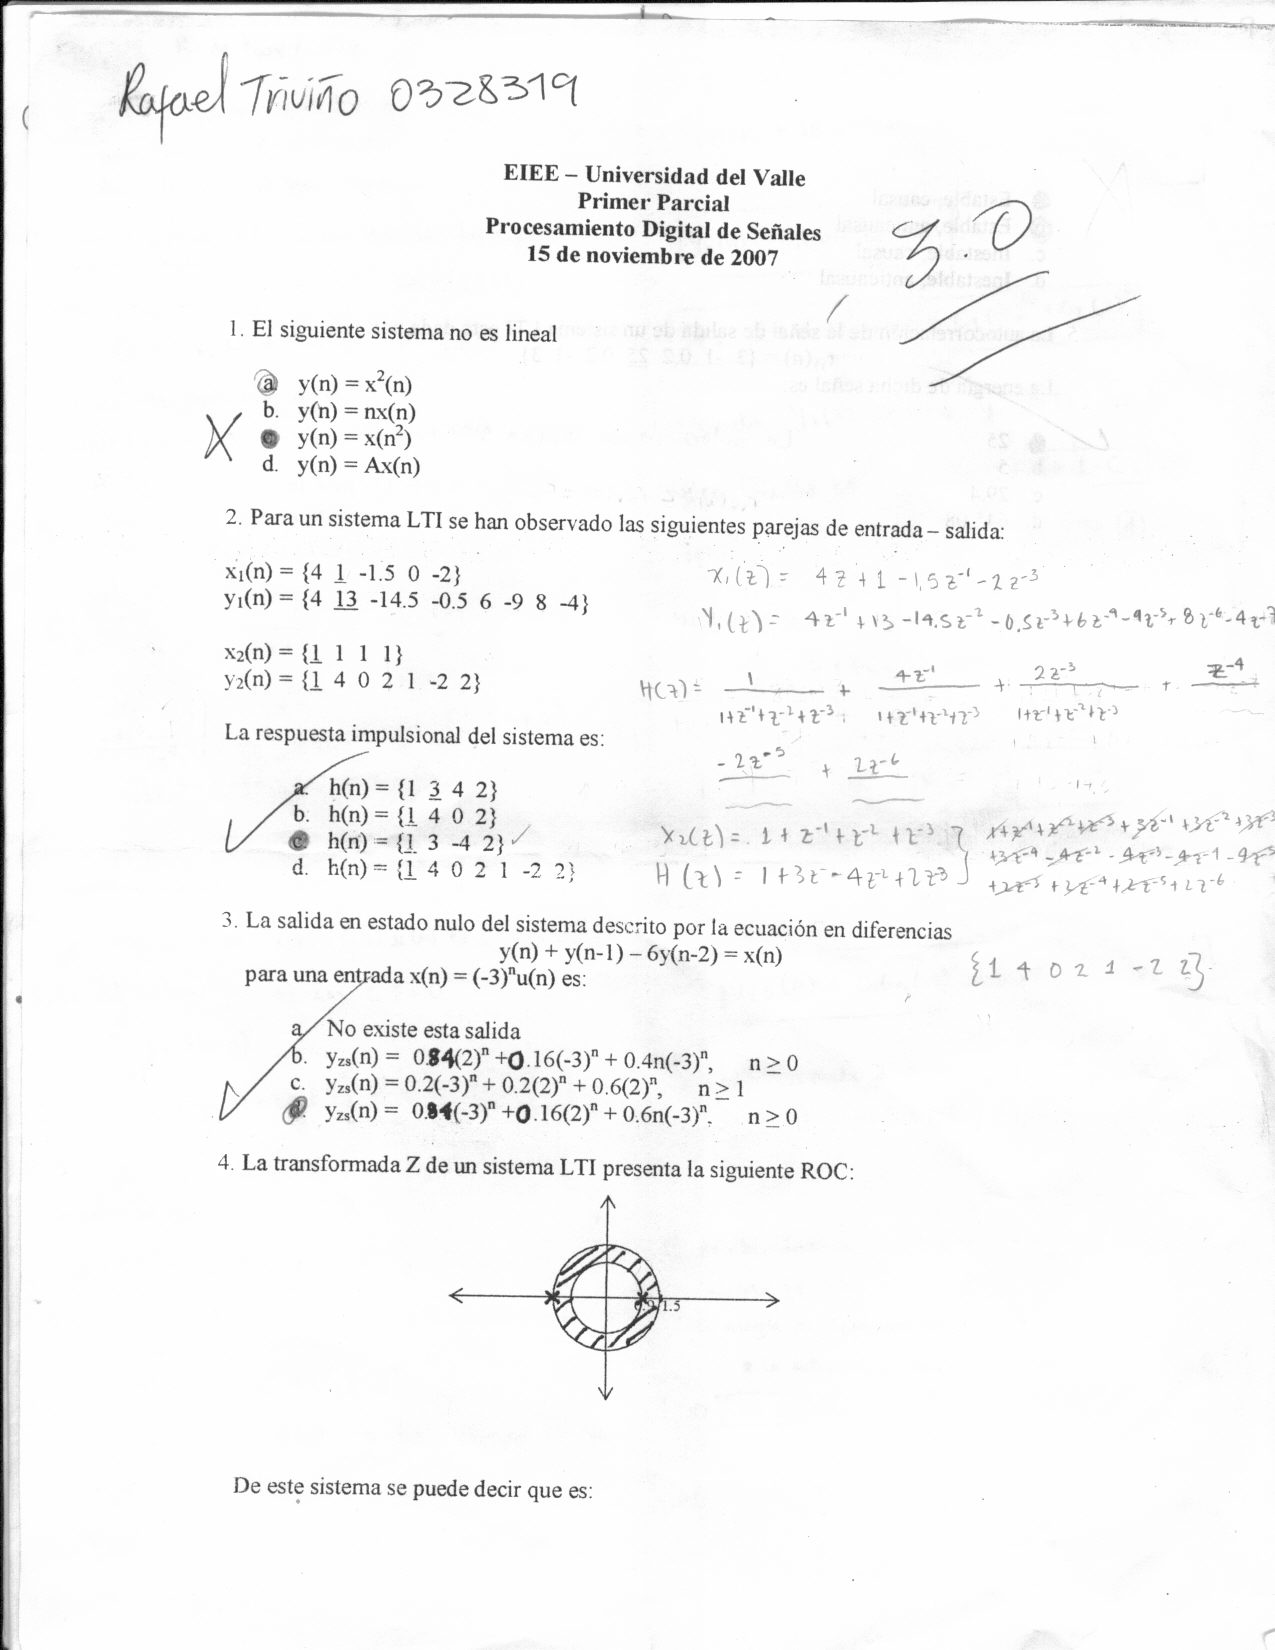 Rafael Triviño 0328319
EIEE – Universidad del Valle
Primer Parcial
Procesamiento Digital de Señales
15 de noviembre de 2007
3.0
1. El siguiente sistema no es lineal
a. y(n) = x²(n)
b. y(n) = nx(n)
c. y(n) = x(n²)
d. y(n) = Ax(n)
2. Para un sistema LTI se han observado las siguientes parejas de entrada – salida:
x₁(n) = {4 1 -1.5 0 -2}
y₁(n) = {4 13 -14.5 -0.5 6 -9 8 -4}
x₂(n) = {1 1 1 1}
y₂(n) = {1 4 0 2 1 -2 2}
X₁(z) = 4z + 1 - 1,5z⁻¹ - 2z⁻³
Y₁(z) = 4z⁻¹ + 13 - 14.5z⁻² - 0.5z⁻³ + 6z⁻⁴ - 9z⁻⁵ + 8z⁻⁶ - 4z⁻⁷
H(z) = 1/(1+z⁻¹+z⁻²+z⁻³) + 4z⁻¹/(1+z⁻¹+z⁻²+z⁻³) + 2z⁻³/(1+z⁻¹+z⁻²+z⁻³) + z⁻⁴
- 2z⁻⁵ + 2z⁻⁶
La respuesta impulsional del sistema es:
a. h(n) = {1 3 4 2}
b. h(n) = {1 4 0 2}
c. h(n) = {1 3 -4 2} ✓
d. h(n) = {1 4 0 2 1 -2 2}
X₂(z) = 1 + z⁻¹ + z⁻² + z⁻³
H(z) = 1+3z⁻-4z⁻²+2z⁻³
1+z⁻¹+z⁻²+z⁻³+3z⁻¹+3z⁻²+3z⁻³
+3z⁻⁴-4z⁻²-4z⁻³-4z⁻⁴-4z⁻⁵
+2z⁻³+2z⁻⁴+2z⁻⁵+2z⁻⁶
{1 4 0 2 1 -2 2}
3. La salida en estado nulo del sistema descrito por la ecuación en diferencias
y(n) + y(n-1) – 6y(n-2) = x(n)
para una entrada x(n) = (-3)ⁿu(n) es:
a. No existe esta salida
b. yzs(n) = 0.84(2)ⁿ +0.16(-3)ⁿ + 0.4n(-3)ⁿ, n ≥ 0
c. yzs(n) = 0.2(-3)ⁿ + 0.2(2)ⁿ + 0.6(2)ⁿ, n ≥ 1
d. yzs(n) = 0.84(-3)ⁿ +0.16(2)ⁿ + 0.6n(-3)ⁿ, n ≥ 0
4. La transformada Z de un sistema LTI presenta la siguiente ROC:
1.5
De este sistema se puede decir que es: